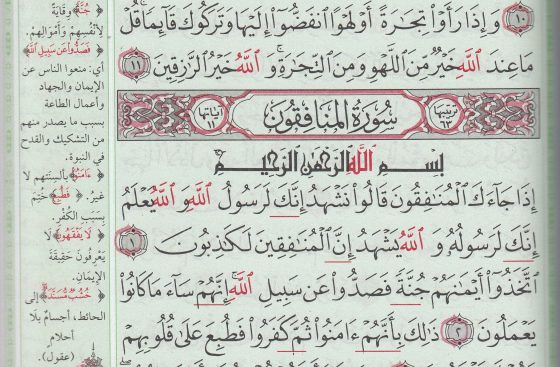 ۝١٠ وَإِذَا رَأَوْا۟ تِجَـٰرَةً أَوْ لَهْوًا ٱنفَضُّوٓا۟ إِلَيْهَا وَتَرَكُوكَ قَآئِمًا ۚ قُلْ
مَا عِندَ ٱللَّهِ خَيْرٌ مِّنَ ٱللَّهْوِ وَمِنَ ٱلتِّجَـٰرَةِ ۚ وَٱللَّهُ خَيْرُ ٱلرَّٰزِقِينَ ۝١١
ترتيبها ٦٣ سُورَةُ الْمُنَافِقُونَ آياتها ١١
بِسْمِ ٱللَّهِ ٱلرَّحْمَـٰنِ ٱلرَّحِيمِ
إِذَا جَآءَكَ ٱلْمُنَـٰفِقُونَ قَالُوا۟ نَشْهَدُ إِنَّكَ لَرَسُولُ ٱللَّهِ ۗ وَٱللَّهُ يَعْلَمُ
إِنَّكَ لَرَسُولُهُۥ وَٱللَّهُ يَشْهَدُ إِنَّ ٱلْمُنَـٰفِقِينَ لَكَـٰذِبُونَ ۝١
ٱتَّخَذُوٓا۟ أَيْمَـٰنَهُمْ جُنَّةً فَصَدُّوا۟ عَن سَبِيلِ ٱللَّهِ ۚ إِنَّهُمْ سَآءَ مَا كَانُوا۟
يَعْمَلُونَ ۝٢ ذَٰلِكَ بِأَنَّهُمْ ءَامَنُوا۟ ثُمَّ كَفَرُوا۟ فَطُبِعَ عَلَىٰ قُلُوبِهِمْ
﴿جُنَّةً﴾ وِقَايَةً
لِأَنْفُسِهِمْ وَأَمْوَالِهِمْ.
﴿فَصَدُّوا۟ عَن سَبِيلِ ٱللَّهِ﴾
أي: منعوا الناس عن
الإيمان والجهاد
وأعمال الطاعة
بسبب ما يصدر منهم
من التشكيك والقدح
في النبوة.
﴿ءَامَنُوا۟﴾ بألسنتهم لا
غير. ﴿فَطُبِعَ﴾ خُتِمَ
بِسَبَبِ الكُفْرِ.
﴿لَا يَفْقَهُونَ﴾ لَا
يَعْرِفُونَ حَقِيقَةَ
الإيمان.
﴿خُشُبٌ مُّسَنَّدَةٌ﴾ إلى
الحائط، أجسامٌ بلا
أحلام
(عقول).